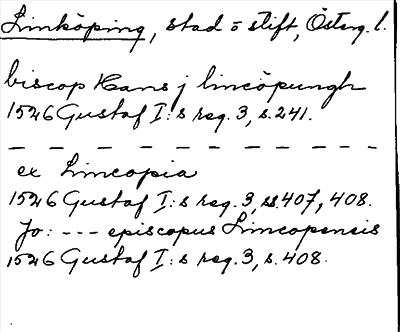 Linköping, stad o stift, Österg. l.
biscop Hans j lincöpungh
1526 Gustaf I:s reg. 3, s. 241.
— — — — — — — — — — —
ex Lincopia
1526 Gustaf I:s reg. 3, ss. 407, 408.
Jo: --- episcopus Lincopensis
1526 Gustaf I:s reg. 3, s. 408.